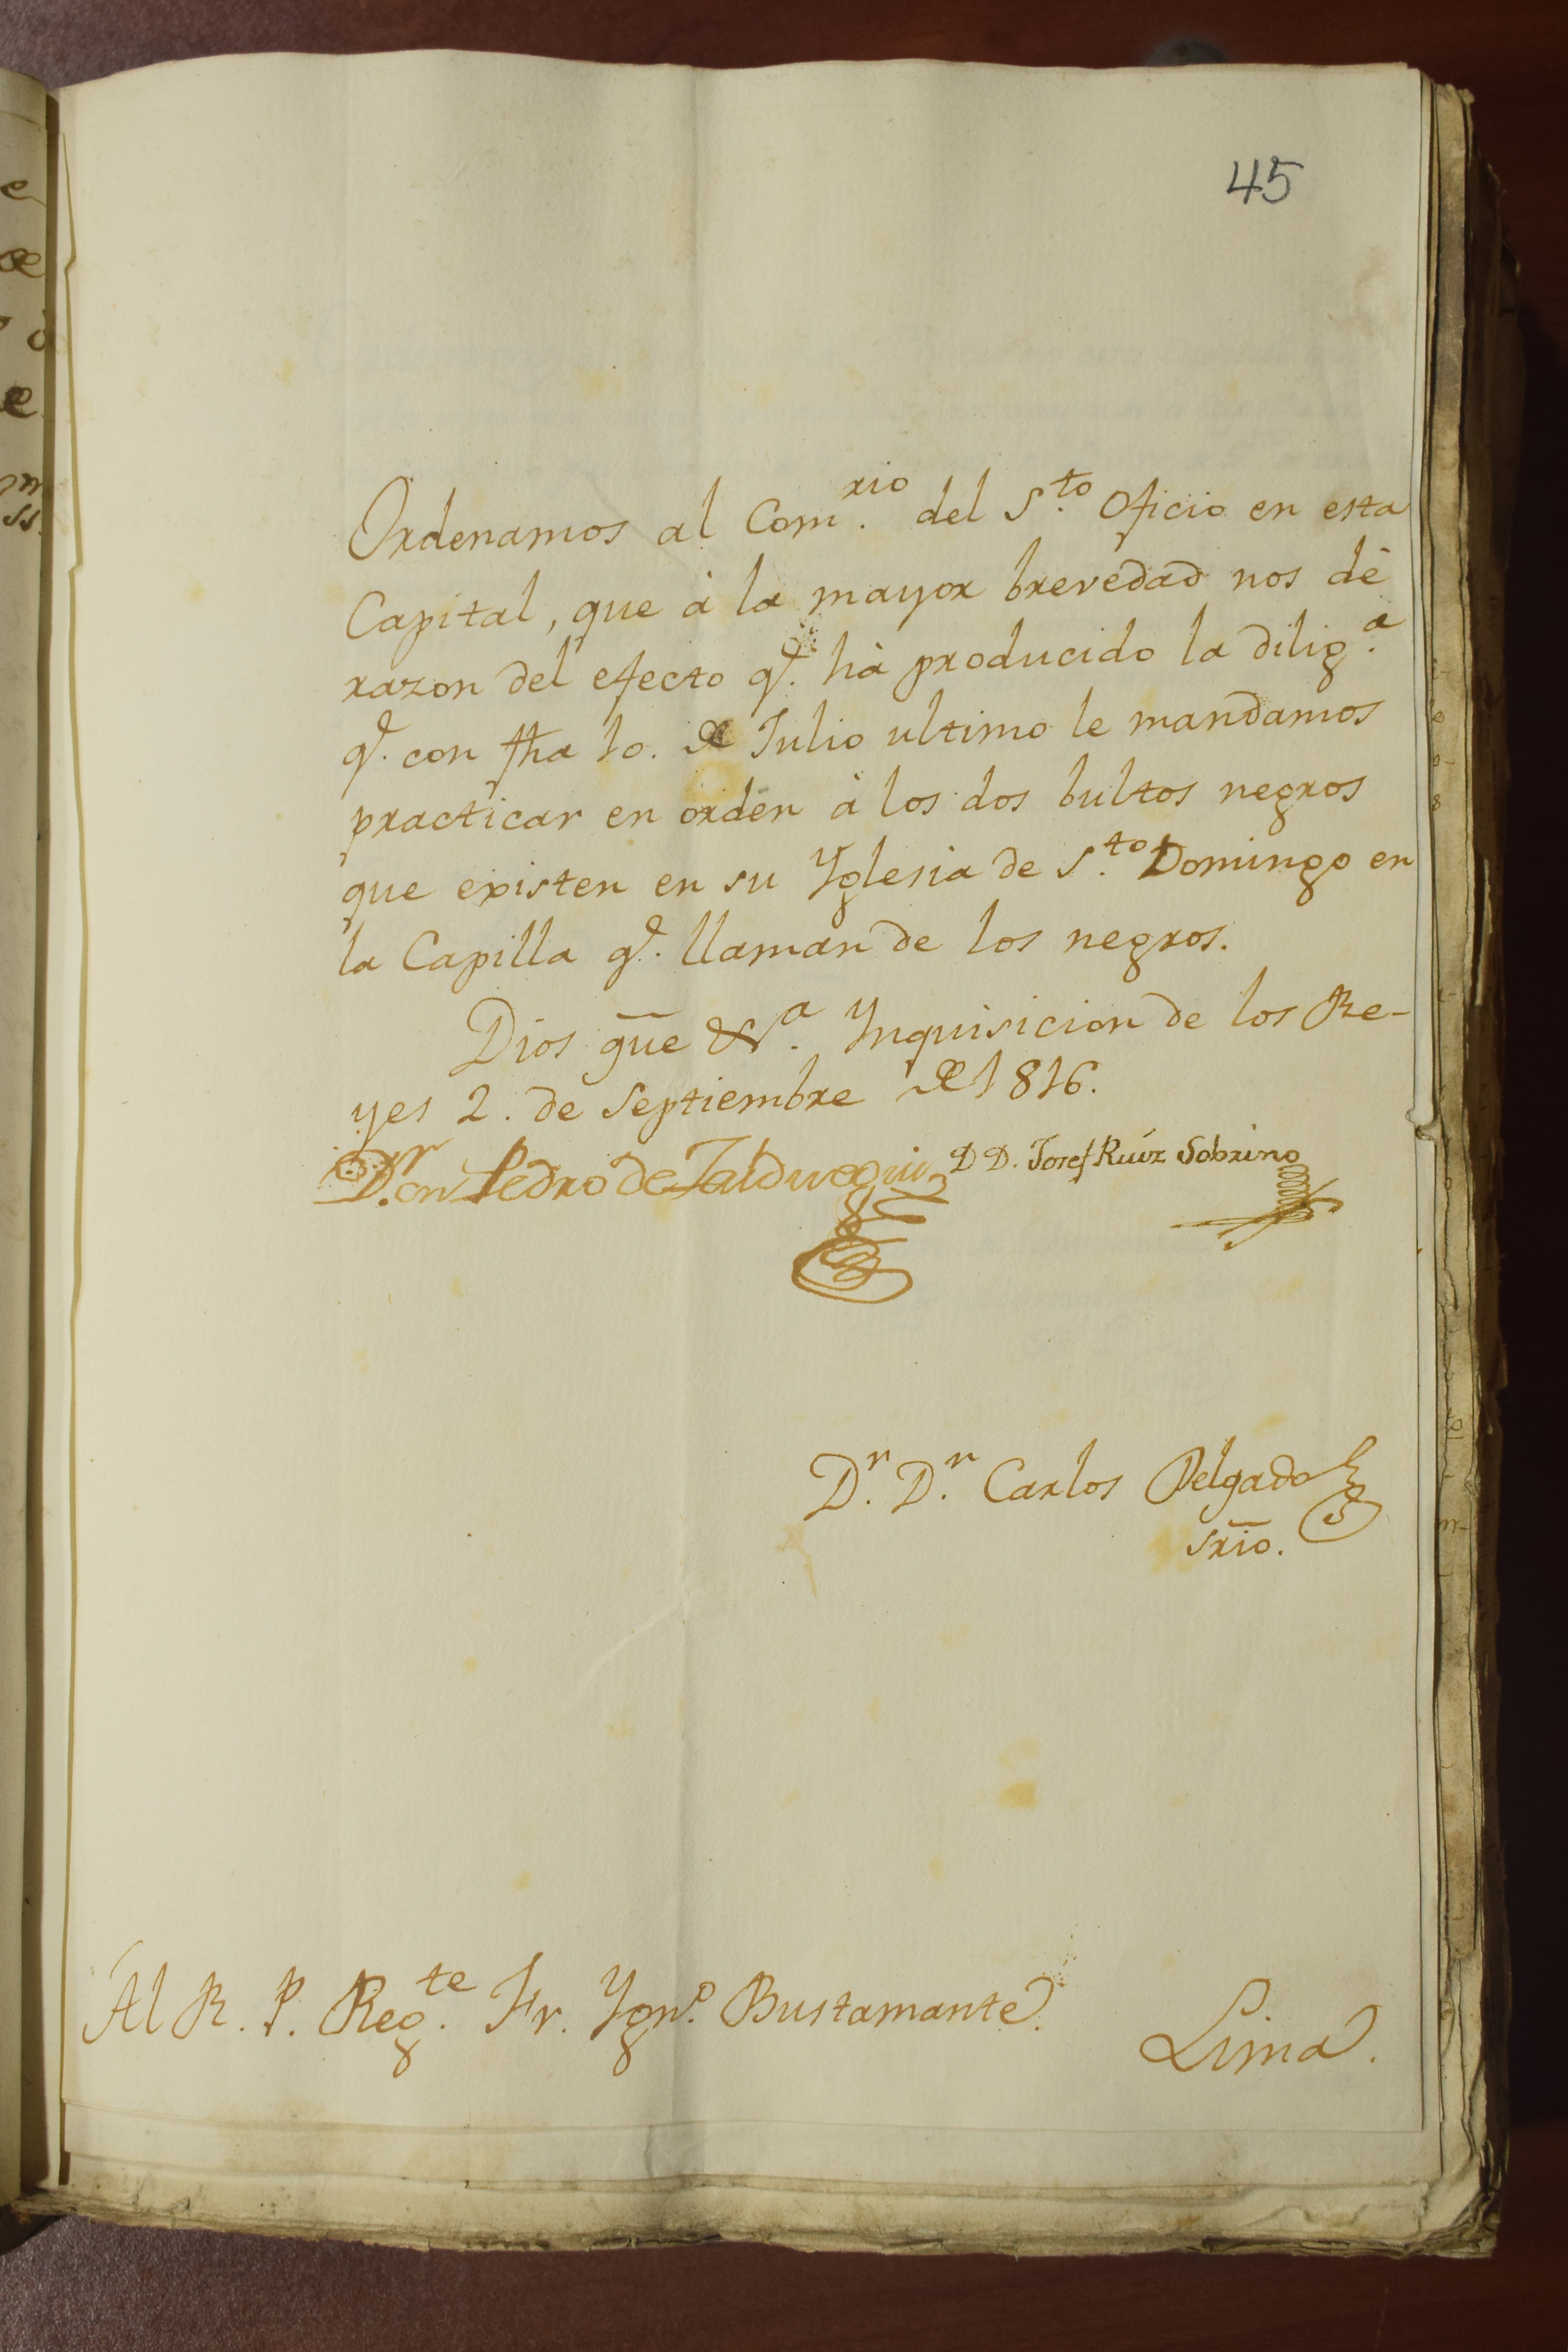 45
Ordenamos al Com.rio del S.to Oficio en esta
Capital, que à la mayor brevedad nos dè
razon del efecto q.e hà producido la dilig.a
q.e con fha 10. de Julio ultimo le mandamos
practicar en orden à los dos bultos negros
que existen en su Yglesia de S.to Domingo en
la Capilla q.e llaman de los negros.
Dios gue &.a Ynquisicion de los Re-
yes 2. de Septiembre de 1816.
D.r Pedro de Zalduegui D D. Josef Ruiz Sobrino
D.r D.n Carlos Delgado
srio.
Al R. P. Reg.te Fr. Ygn.o Bustamante.
Lima.